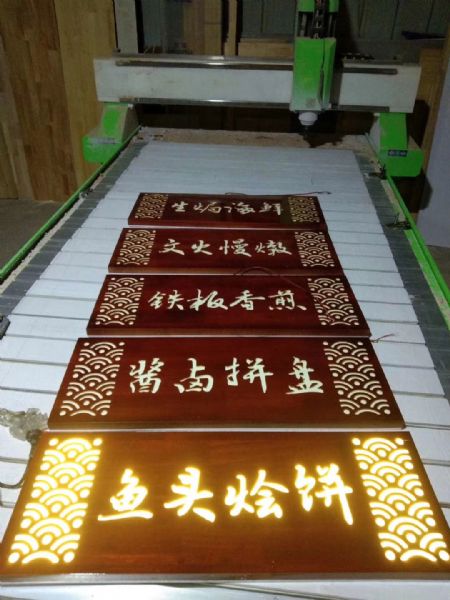 生焗海鲜
文火慢燉
铁板香煎
酱卤拼盘
鱼头烩饼